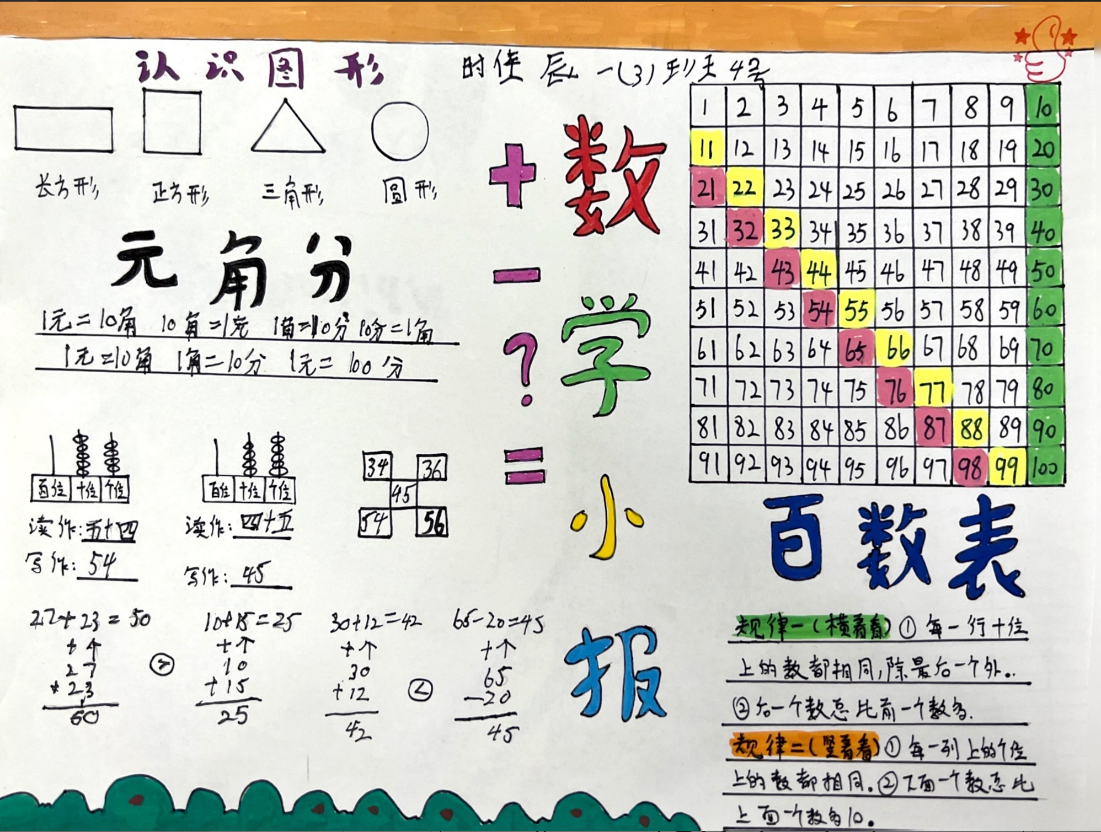 认识图形
长方形 正方形 三角形 圆形
元角分
1元=10角 10角=1元 1角=10分 10分=1角
1元=10角 1角=10分 1元=100分
百位 十位 个位
读作:五十四
写作:54
百位 十位 个位
读作:四十五
写作:45
34 36
45
54 56
27+23=50
27
+23
50
10+15=25
10
+15
25
30+12=42
30
+12
42
65-20=45
65
-20
45
+
-
?
=
数
学
小
报
1 2 3 4 5 6 7 8 9 10
11 12 13 14 15 16 17 18 19 20
21 22 23 24 25 26 27 28 29 30
31 32 33 34 35 36 37 38 39 40
41 42 43 44 45 46 47 48 49 50
51 52 53 54 55 56 57 58 59 60
61 62 63 64 65 66 67 68 69 70
71 72 73 74 75 76 77 78 79 80
81 82 83 84 85 86 87 88 89 90
91 92 93 94 95 96 97 98 99 100
百数表
规律一(横着看)①每一行十位
上的数都相同,除最后一个外。
②后一个数总比前一个数多.
规律二(竖着看)①每一列上的个位
上的数都相同。②下面一个数总比
上面一个数多10。